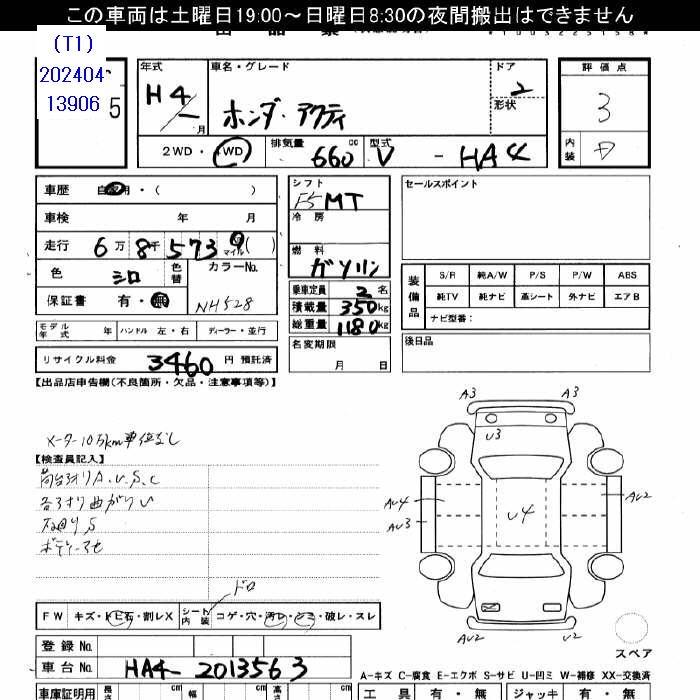 この車両は土曜日19:00～日曜日8:30の夜間搬出はできません
(T1)
202404
13906
5
年式
H4/
月
車名・グレード
ホンダ・アクティ
ドア
2
形状
評価点
3
内装
D
2WD・4WD
排気量
660
cc
型式
V - HA4
車歴
自家用・( )
車検 年 月
走行 6万8千573 マイル( )
色 シロ
色替
カラーNo.
NH528
保証書 有・無
シフト
F5 MT
冷房
燃料
ガソリン
乗車定員 2名
積載量 350kg
総重量 1180kg
セールスポイント
装備品
S/R 純A/W P/S P/W ABS
純TV 純ナビ 革シート 外ナビ エアB
ナビ型番:
モデル年式 年
ハンドル 左・右
ディーラー・並行
名変期限
月 日
後日品
リサイクル料金 3460 円 預託済
【出品店申告欄(不良箇所・欠品・注意事項等)】
メーター10万km車位なし
【検査員記入】
荷台ヨリA.U.S.C
各ヨリ曲がりU
下廻りS
ボデー
ドロ
FW キズ・トビ石・割レX
シート内装
コゲ・穴・汚レ・シミ・破レ・スレ
A3 A3
U3
AU4
AU3
U4
AU2
AU2
U2
スペア
登録No.
車台No. HA4-2013563
A-キズ C-腐食 E-エクボ S-サビ U-凹ミ W-補修 XX-交換済
車庫証明用
長さ cm
幅 cm
高さ cm
工具 有・無
ジャッキ 有・無